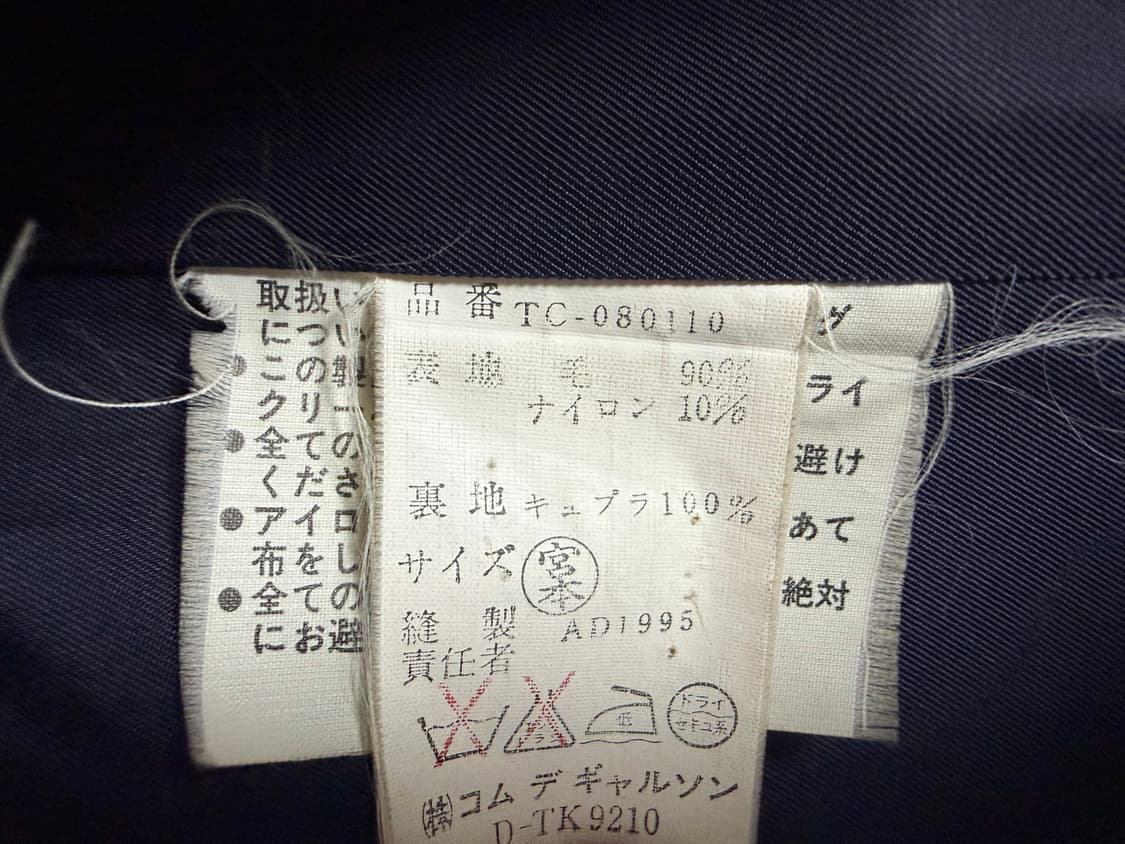 品番 TC-080110
表地 毛 90%
ナイロン 10%
裏地 キュプラ100%
サイズ
宮本
縫製 AD1995
責任者
低
ドライ
セキユ系
㈱コムデギャルソン
D-TK9210
取扱い
につい
●この製
クリー
●全ての
くださ
●アイロ
布をし
●全ての
にお避
グ
ライ
避け
あて
絶対